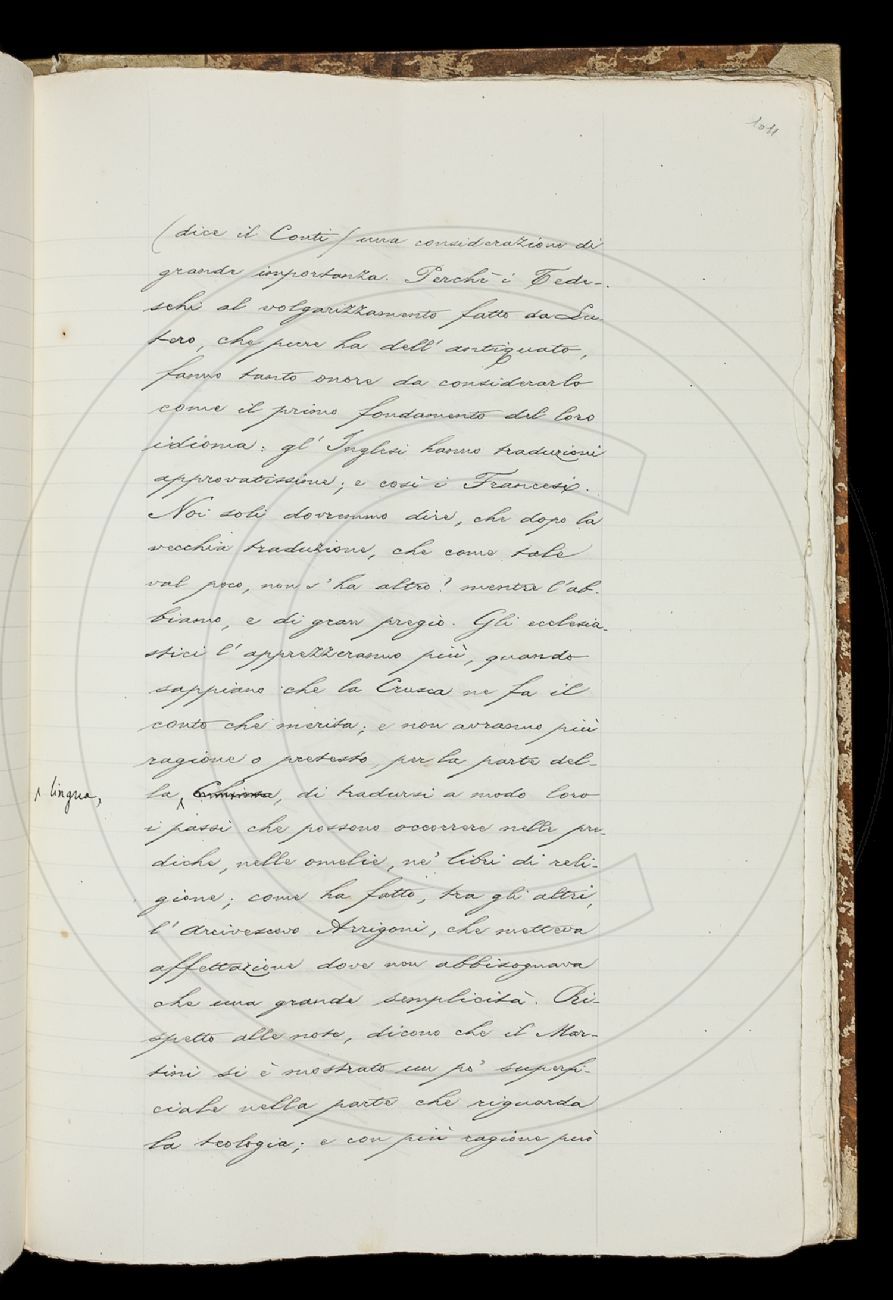 1011
(dice il Conti) una considerazione di
grande importanza. Perchè i Tede-
schi al volgarizzamento fatto da Lu
tero, che pure ha dell' antiquato,
fanno tanto onore da considerarlo
come il primo fondamento del loro
idioma: gl' Inglesi hanno traduzioni
approvatissime; e così i Francesi.
Noi soli dovremmo dire, che dopo la
vecchia traduzione, che come tale
val poco, non s' ha altro? mentre l' ab-
biamo, e di gran pregio. Gli ecclesia-
stici l' apprezzeranno più, quando
sappiano che la Crusca ne fa il
conto che merita; e non avranno più
ragione o pretesto, per la parte del-
la ^ Chiesa, di tradursi a modo loro
^ lingua,
i passi che possono occorrere nelle pre-
diche, nelle omelie, ne' libri di reli-
gione; come ha fatto, tra gli altri,
l' Arcivescovo Arrigoni, che metteva
affettazione dove non abbisognava
che una grande semplicità. Ri-
spetto alle note, dicono che il Mar-
tini si è mostrato un pò superfi-
ciale nella parte che riguarda
la teologia; e con più ragione però